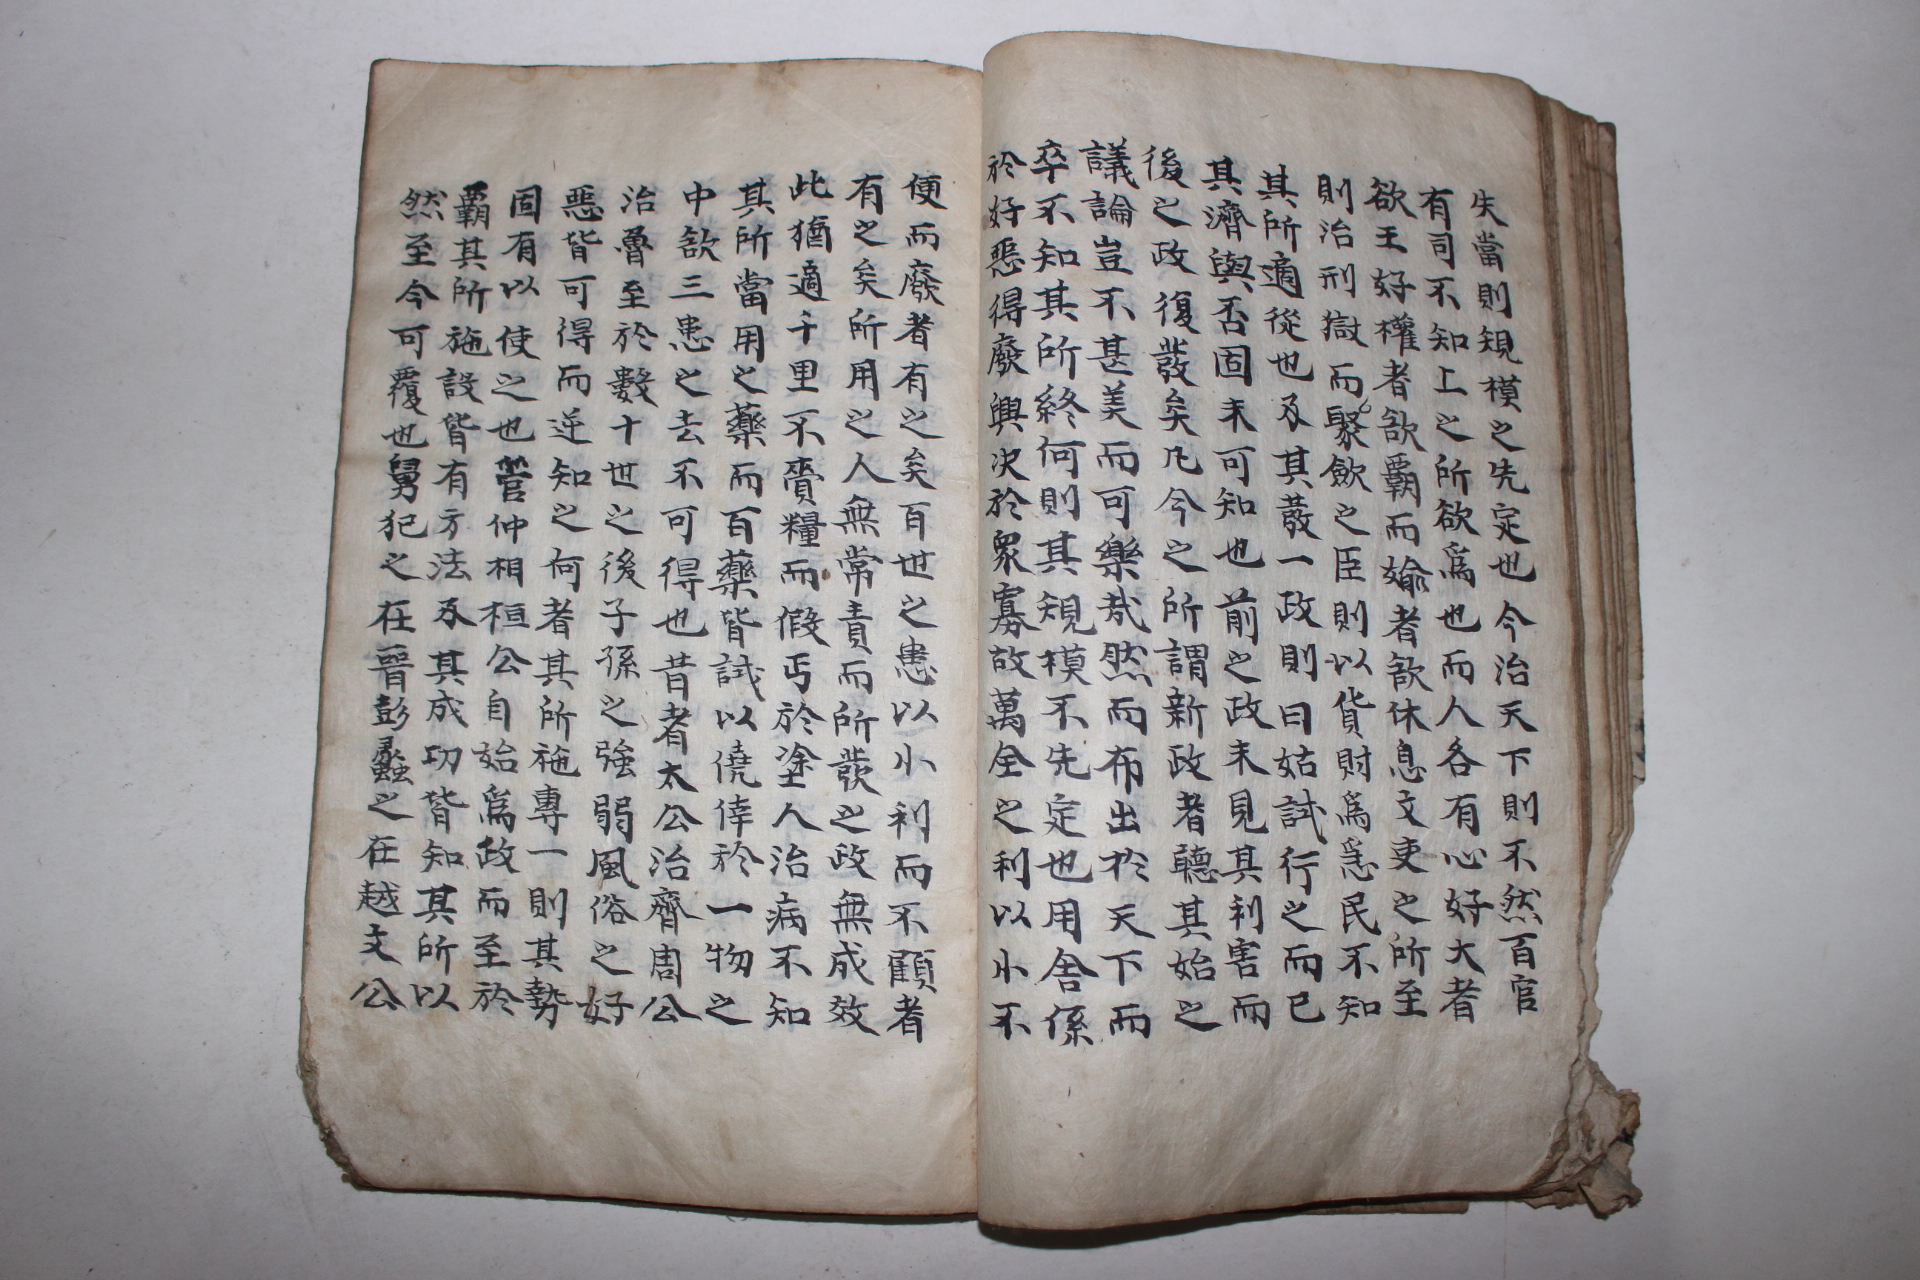 失當則規模之先定也今治天下則不然百官
有司不知上之所欲爲也而人各有心好大者
欲王好權者欲霸而媮者欲休息文吏之所至
則治刑獄而聚斂之臣則以貨財爲急民不知
其所適從也及其發一政則曰姑試行之而已
其濟與否固未可知也前之政未見其利害而
後之政復發矣凡今之所謂新政者聽其始之
議論豈不甚美而可樂哉然而布出於天下而
卒不知其所終何則其規模不先定也用舍係
於好惡得廢興决於衆寡故萬全之利以小不
便而廢者有之矣百世之患以小利而不顧者
有之矣所用之人無常責而所發之政無成效
此猶適千里不賫糧而假丐於塗人治病不知
其所當用之藥而百藥皆試以僥倖於一物之
中欲三患之去不可得也昔者太公治齊周公
治魯至於數十世之後子孫之強弱風俗之好
惡皆可得而逆知之何者其所施專一則其勢
固有以使之也管仲相桓公自始爲政而至於
霸其所施設皆有方法及其成功皆知其所以
然至今可覆也舅犯之在晉彭蠡之在越文公